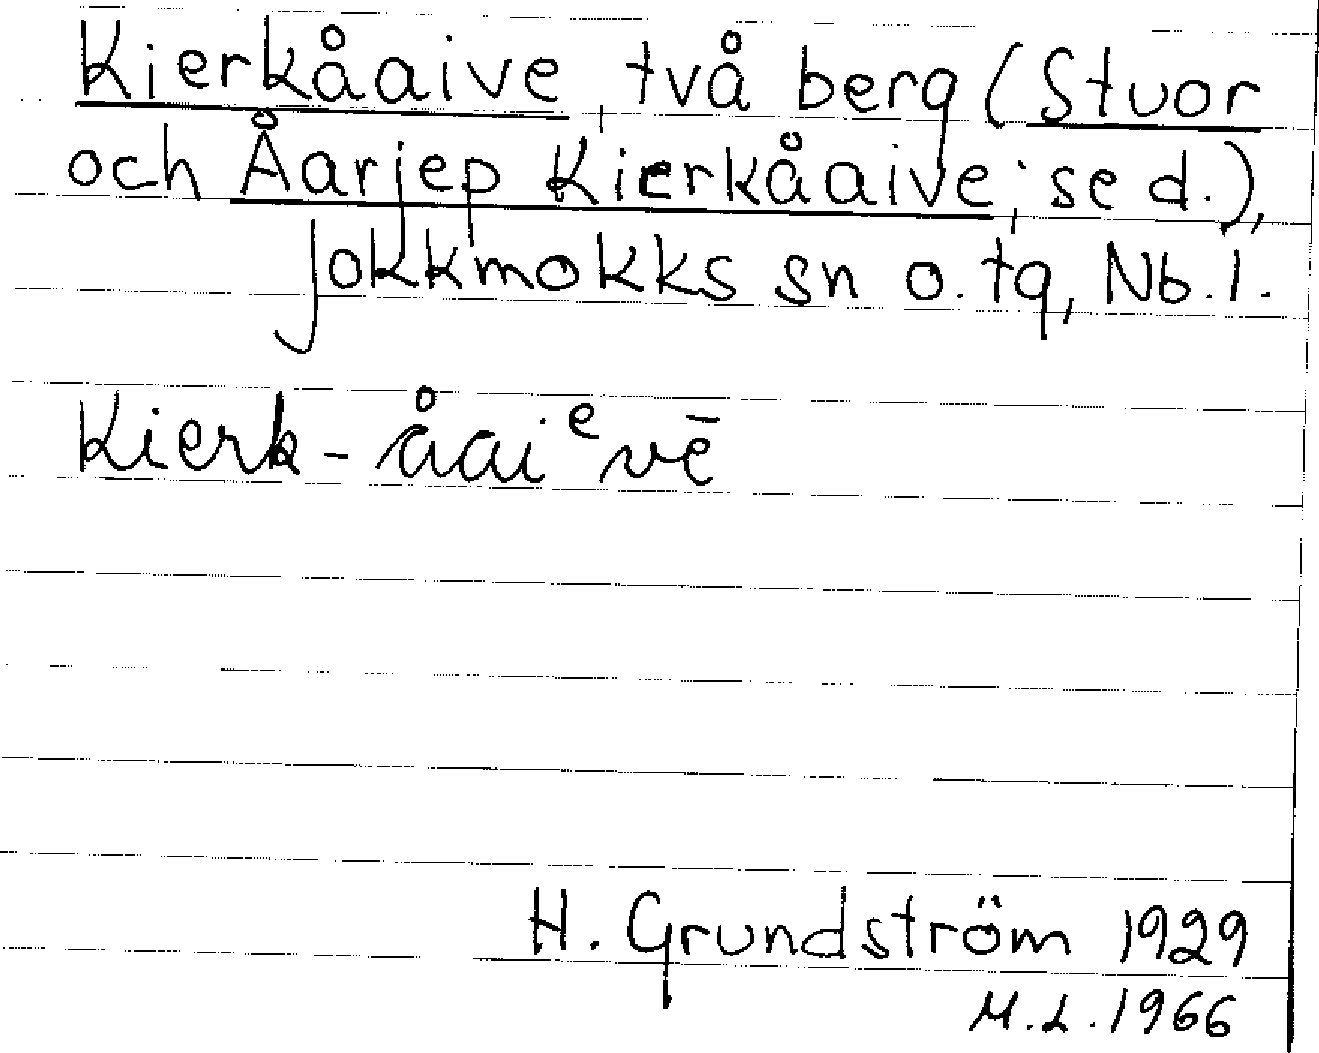 Kierkåaive, två berg (Stuor
och Åarjep Kierkåaive; se d.),
Jokkmokks sn o. tg, Nb. l.
Kierk-åaiᵉvē
H. Grundström 1929
M.L. 1966